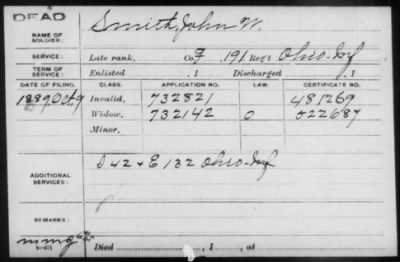 DEAD
NAME OF SOLDIER: Smith, John W.
SERVICE: Late rank, Co. G, 191 Reg't Ohio Inf
TERM OF SERVICE: Enlisted , 1 Discharged , 1
DATE OF FILING. CLASS. APPLICATION NO. LAW. CERTIFICATE NO.
1889 Oct 9 Invalid, 732821 481269
Widow, 732142 O 522687
Minor,
ADDITIONAL SERVICES: I 42 & E 132 Ohio Inf
REMARKS:
Died , 1 , at